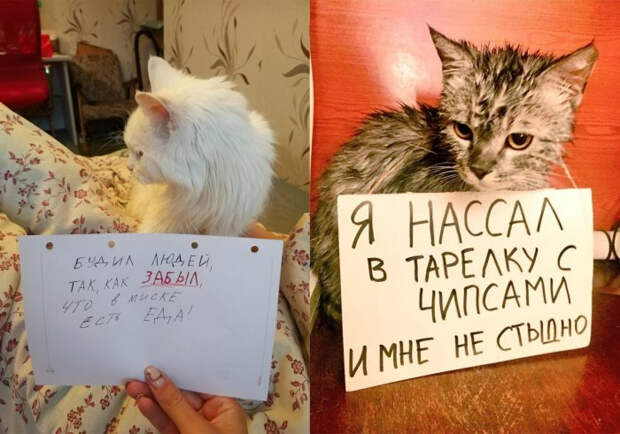 БУДИЛ ЛЮДЕЙ,
ТАК, КАК ЗАБЫЛ,
ЧТО В МИСКЕ
ЕСТЬ ЕДА!
Я НАССАЛ
В ТАРЕЛКУ С
ЧИПСАМИ
И МНЕ НЕ СТЫДНО